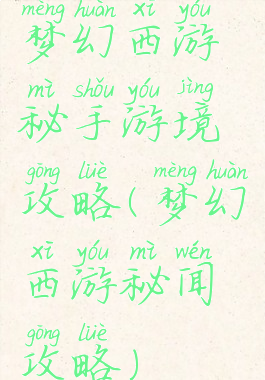 mèng huàn xī yóu
梦幻西游
mì shǒu yóu jìng
秘手游境
gōng lüè mèng huàn
攻略(梦幻
xī yóu mì wén
西游秘闻
gōng lüè
攻略)